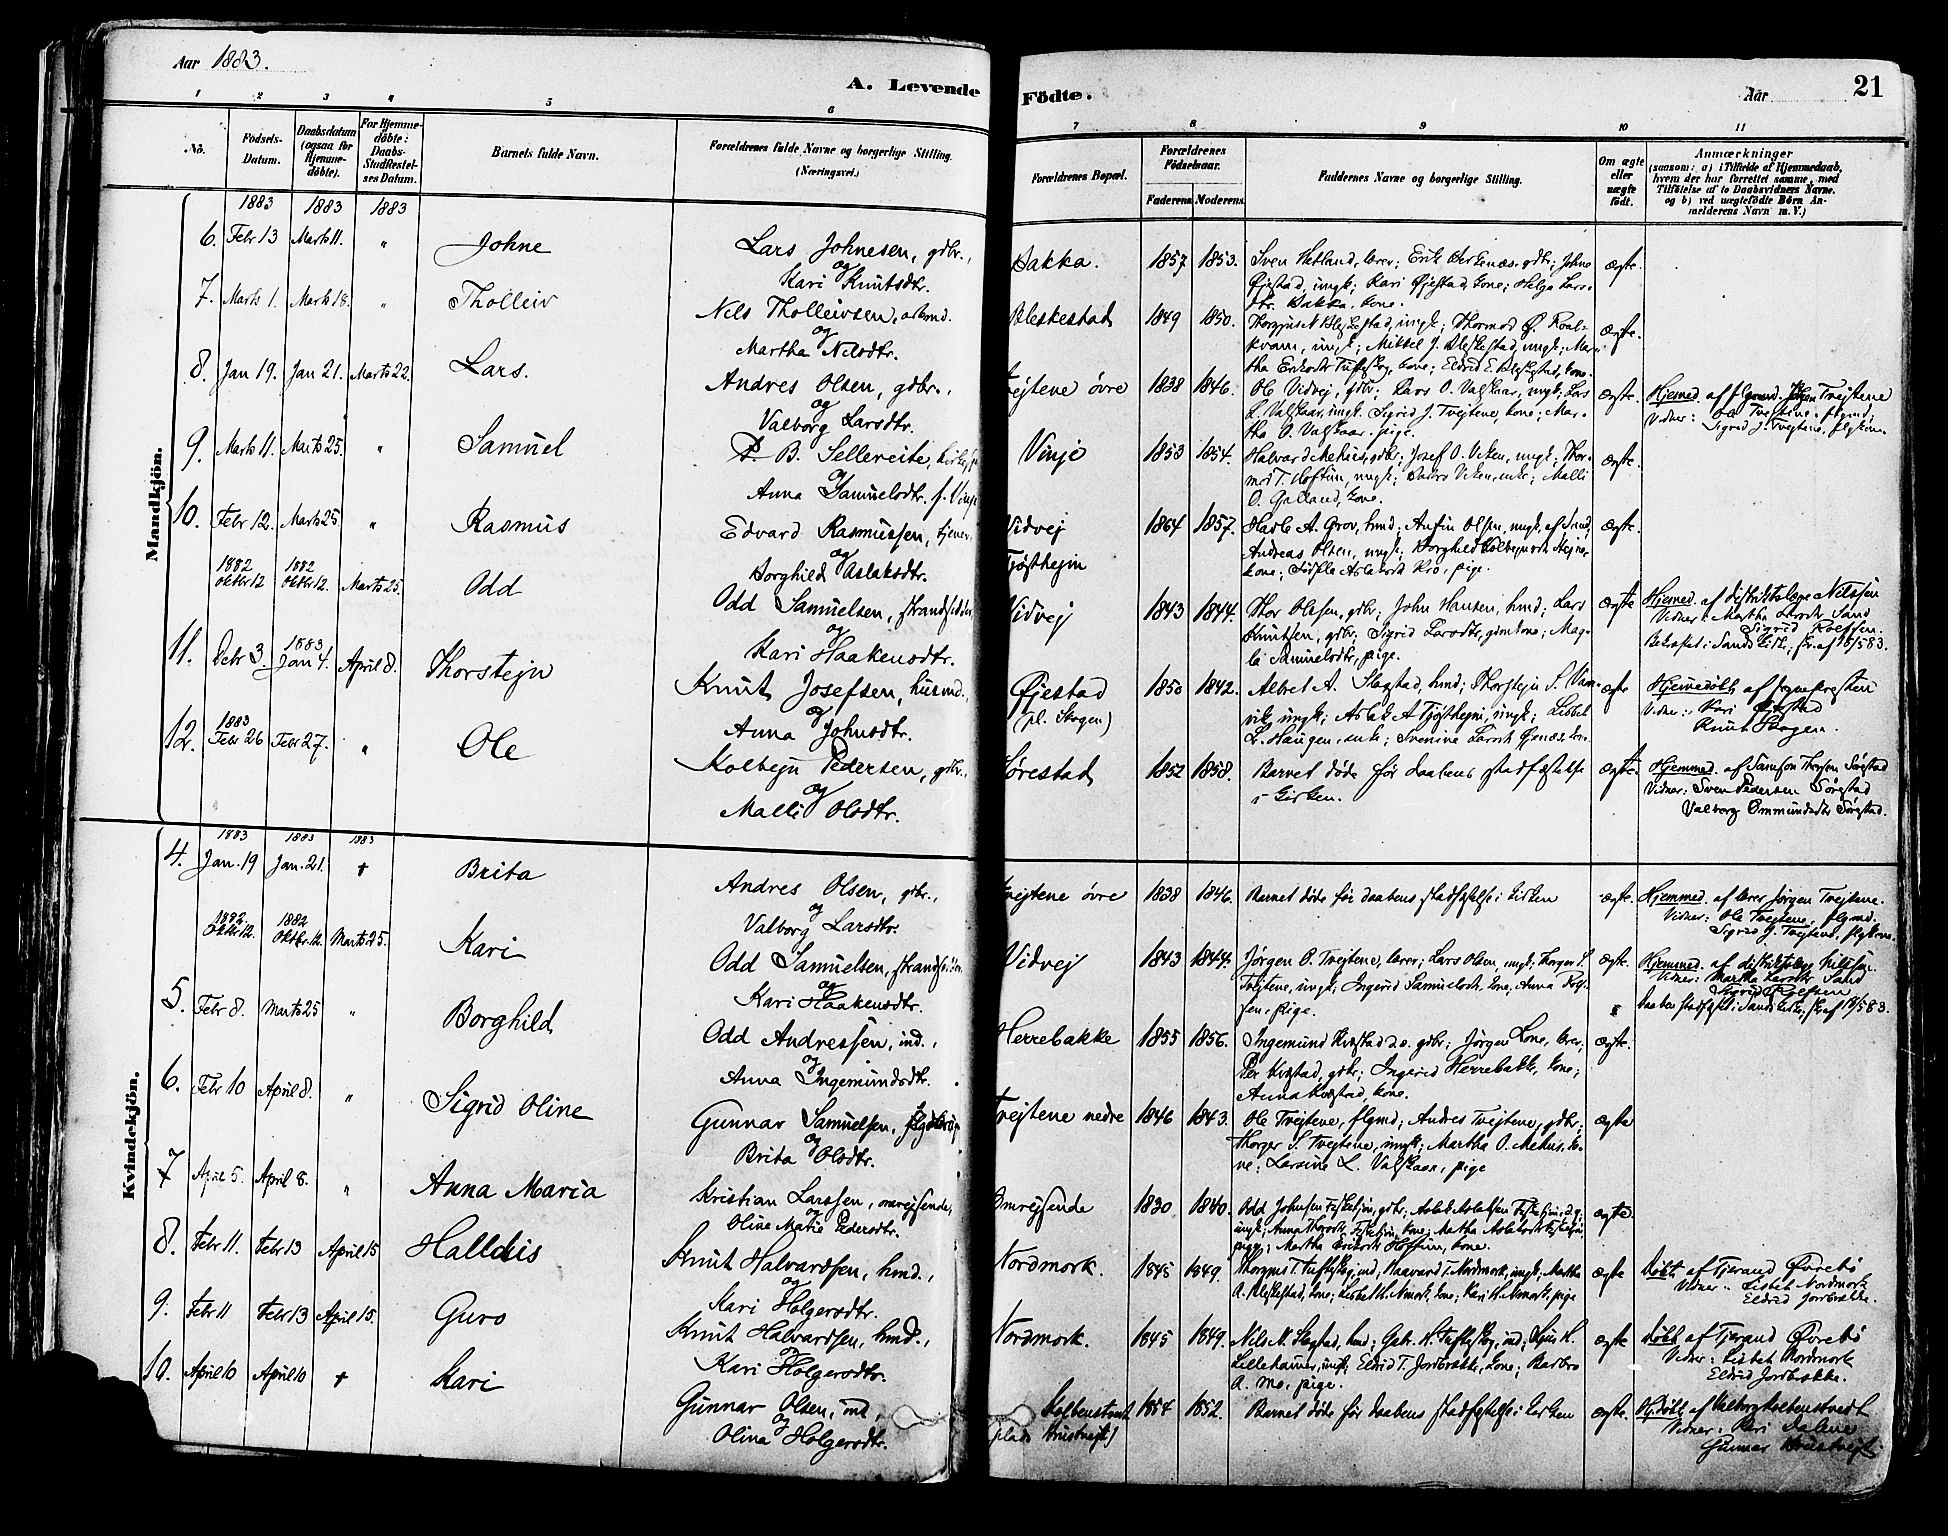 Aar 1883.
A. Levende Födte.
Aar
21
1 2 3 4 5 6 7 8 9 10 11
No.
Födsels-
Datum.
Daabsdatum
(ogsaa for
Hjemme-
döbte).
For Hjemme-
döbte:
Daabs-
Stadfæstel-
ses Datum.
Barnets fulde Navn.
Forældrenes fulde Navne og borgerlige Stilling.
(Næringsvei.)
Forældrenes Bopæl.
Forældrenes
Födselsaar.
Faderens
Moderens
Faddernes Navne og borgerlige Stilling.
Om ægte
eller
uægte
födt.
Anmærkninger
(saasom: a) i Tilfælde af Hjemmedaab,
hvem der har forrettet samme, med
Tilföielse af to Daabsvidners Navne.
og b) ved uægtefödte Börn An-
melderens Navn m. V.)
Mandkjön.
1883 1883 1883
6. Febr 13 Marts 11. " Johne
Lars Johnesen, gdbr.,
og
Kari Knutsdtr.
Bakka. 1857 1853.
Sven Hetland, lærer; Erik Birkenæs, gdbr; Johne
Øjestad, ungk; Kari Øjestad, kone; Helga Lars-
dtr. Bakka, kone.
ægte.
7. Marts 1. Marts 18. " Tholleiv
Nils Tholleivsen, arbmd.
og
Martha Nilsdtr.
Bleskestad 1849 1850.
Thormod Ø. Roal-
kvam, ungk; Mikkel J. Bleskestad, ungk; Mar-
tha Eriksdtr Tuftskog, kone; Eldrid E. Bleskestad, kone.
ægte.
8. Jan 19. Jan 21. Marts 22. Lars.
Andres Olsen, gdbr.,
og
Valborg Larsdtr.
Tvejtene øvre 1838 1846.
Ole Vidvej, gdbr; Lars O. Valskaar, ungk; Lars
L. Valskaar, ungk. Sigrid J. Tvejtene, kone; Mar-
tha O. Valskaar, pige.
ægte.
Hjemmed. af Tvejtene
Vidner: Ole Tvejtene, flgmd;
Sigrid J. Tvejtene, flgkone.
9. Marts 11. Marts 25. " Samuel
P. B. Sellereite,
og
Anna Samuelsdtr. f. Vinje
Vinje 1853 1854.
Halvard Mehus, gdbr; Josef O. Viken, ungk; Thor-
mod T. Hoftun, ungk; Barbro Viken, enke; Malli
O. Galland, kone.
ægte.
10. Febr 12. Marts 25. " Rasmus
Edvard Rasmussen, tjener
og
Borghild Aslaksdtr.
Vidvej
Tjøsthejm
1864 1857.
Hadle A. Grov, hmd; Anfin Olsen, ungk, af Sand,
Andreas Olsen, ungk; Borghild Kolbejnsdtr
kone; Aslaksdtr Kro, pige.
ægte.
1882 1882
Oktbr 12 Oktbr. 12. Marts 25. Odd
Odd Samuelsen, strandsidder,
og
Kari Haakensdtr.
Vidvej 1843 1844.
Thor Olesen, gdbr; John Hansen, hmd; Lars
Knutsen, gdbr; Sigrid Larsdtr, gdmkone; Mag-
la Samuelsdtr, pige.
ægte
Hjemmed. af distriktslæge Nilssen
Vidner: Martha Larsdtr Sand
Sigrid Roelfsen.
Bekræftet i Sands kirke, 18/5 83.
11. Decbr 3. 1883 Jan 4. April 8. Thorstejn
Knut Josefsen, husmd.,
og
Anna Johnsdtr.
Øjestad
(pl. Skogen)
1850 1842.
Albret A. Slegstad, hmd; Thorstejn S. Vam-
vik, ungk; Aslak A Tjøsthejm, ungk; Lisbet
L. Haugen, enke; Svenine Larsdtr Øjenæs, kone
ægte
Hjemmedøbt af sognepresten
Vidner: Kari Øjestad
Knut Skogen.
12. 1883 Febr 26 Febr 27. " Ole
Kolbejn Pedersen, gdbr.,
og
Malli Olsdtr.
Sørestad 1852 1858.
Barnet døde før daabens stadfæstelse
i kirken.
ægte.
Hjemmed. af Samson Thorsen Sørestad
Vidner: Sven Pedersen Sørestad
Valborg Ommundsdtr Sørestad.
Kvindekjön.
1883 1883 1883
4. Jan. 19 Jan. 21. + Brita
Andres Olsen, gdbr.,
og
Valborg Larsdtr.
Tvejtene øvre 1838 1846.
Barnet døde før daabens stadfæstelse i kirken
ægte.
Hjemmed. af lærer Jørgen Tvejtene.
Vidner: Ole Tvejtene, flgmd.
Sigrid J. Tvejtene, flgkone.
1882. 1882
Oktbr 12. Oktbr. 12. Marts 25. Kari
Odd Samuelsen, strandsidder
og
Kari Haakensdtr.
Vidvej 1843 1844.
Jørgen O. Tvejtene, lærer; Lars Olsen, ungk; Thorger S.
Tvejtene, ungk; Ingerid Samuelsdtr, kone; Anna Rolf-
sen, pige.
ægte.
Hjemmed. af distriktslæge Nilssen.
Vidner: Martha Larsdtr Sand
Sigrid Roelfsen
Daaben stadfæstet i Sands kirke, 18/5 83.
5. Febr 8. Marts 25 " Borghild
Odd Andressen, ind.,
og
Anna Ingemundsdtr.
Herrebakke 1855 1856.
Ingemund Kvæstad d.e. gdbr; Jørgen Lone, lærer;
Per Kvæstad, gdbr; Ingerid Herrebakke, kone;
Anna Kvæstad, kone.
ægte.
6. Febr 10 April 8. " Sigrid Oline
Gunnar Samuelsen,
og
Brita Olsdtr.
Tvejtene nedre 1846 1843.
Ole Tvejtene, flgmd; Andres Tvejtene, gdbr;
Thorger S. Tvejtene, ungk; Martha O. Mehus, ko-
ne; Larsine L. Valskaar, pige
ægte
7 April 5. April 8. " Anna Maria
Kristian Larssen, omrejsende,
og
Oline Matie Pedersdtr.
Omrejsende 1830 1840.
Odd Johnsen Fiskekjøn, gdbr; Aslak Aslaksen Fiskekjøn, d.y.
ungk; Anna Thorsdtr Fiskekjøn, kone; Martha Aslaksdtr Fiskekjøn,
pige; Martha Eriksdtr Hoftun, kone.
ægte.
8. Febr 11. Febr 13 April 15 Halldis
Knut Halvardsen, hmd.,
og
Kari Holgersdtr.
Nordmork. 1845 1849.
Thorgius T. Tuftskog, ind; Haavard T. Nordmork, ungk; Martha
A. Bleskestad, kone; Lisbet H. Nmork, kone; Kari H. Nmork, pige
ægte
Døbt af Tjerand Øvrebø
Vidner: Lisbet Nordmork
Eldrid Jordbrække.
9. Febr 11 Febr 13 April 15. Guro
Knut Halvardsen, hmd.,
og
Kari Holgersdtr.
Nordmork. 1845 1849.
Nils N. Slegstad, hmd; Gabr. H. Tuftskog, ind; Gjus H.
Lillehamer, ungk; Eldrid T. Jordbrække, kone; Barbro
A. Mo, pige.
ægte
Døbt af Tjerand Øvrebø
Vidner: Lisbet Nordmork
Eldrid Jordbrække.
10. April 10 April 10 + Kari
Gunnar Olsen, ind,
og
Olina Holgersdtr.
Kolbenstvedt
(plads Krustvejt)
1854 1852.
Barnet døde før daabens stadfæstelse i kirken
ægte.
Hjdøbt af Valborg Kolbenstvedt
Vidner: Kari Dalene
Gunnar Krustvejt